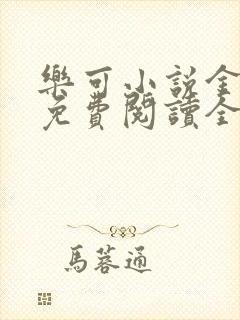 樂可小説全
免費閱讀全
馬蓉通